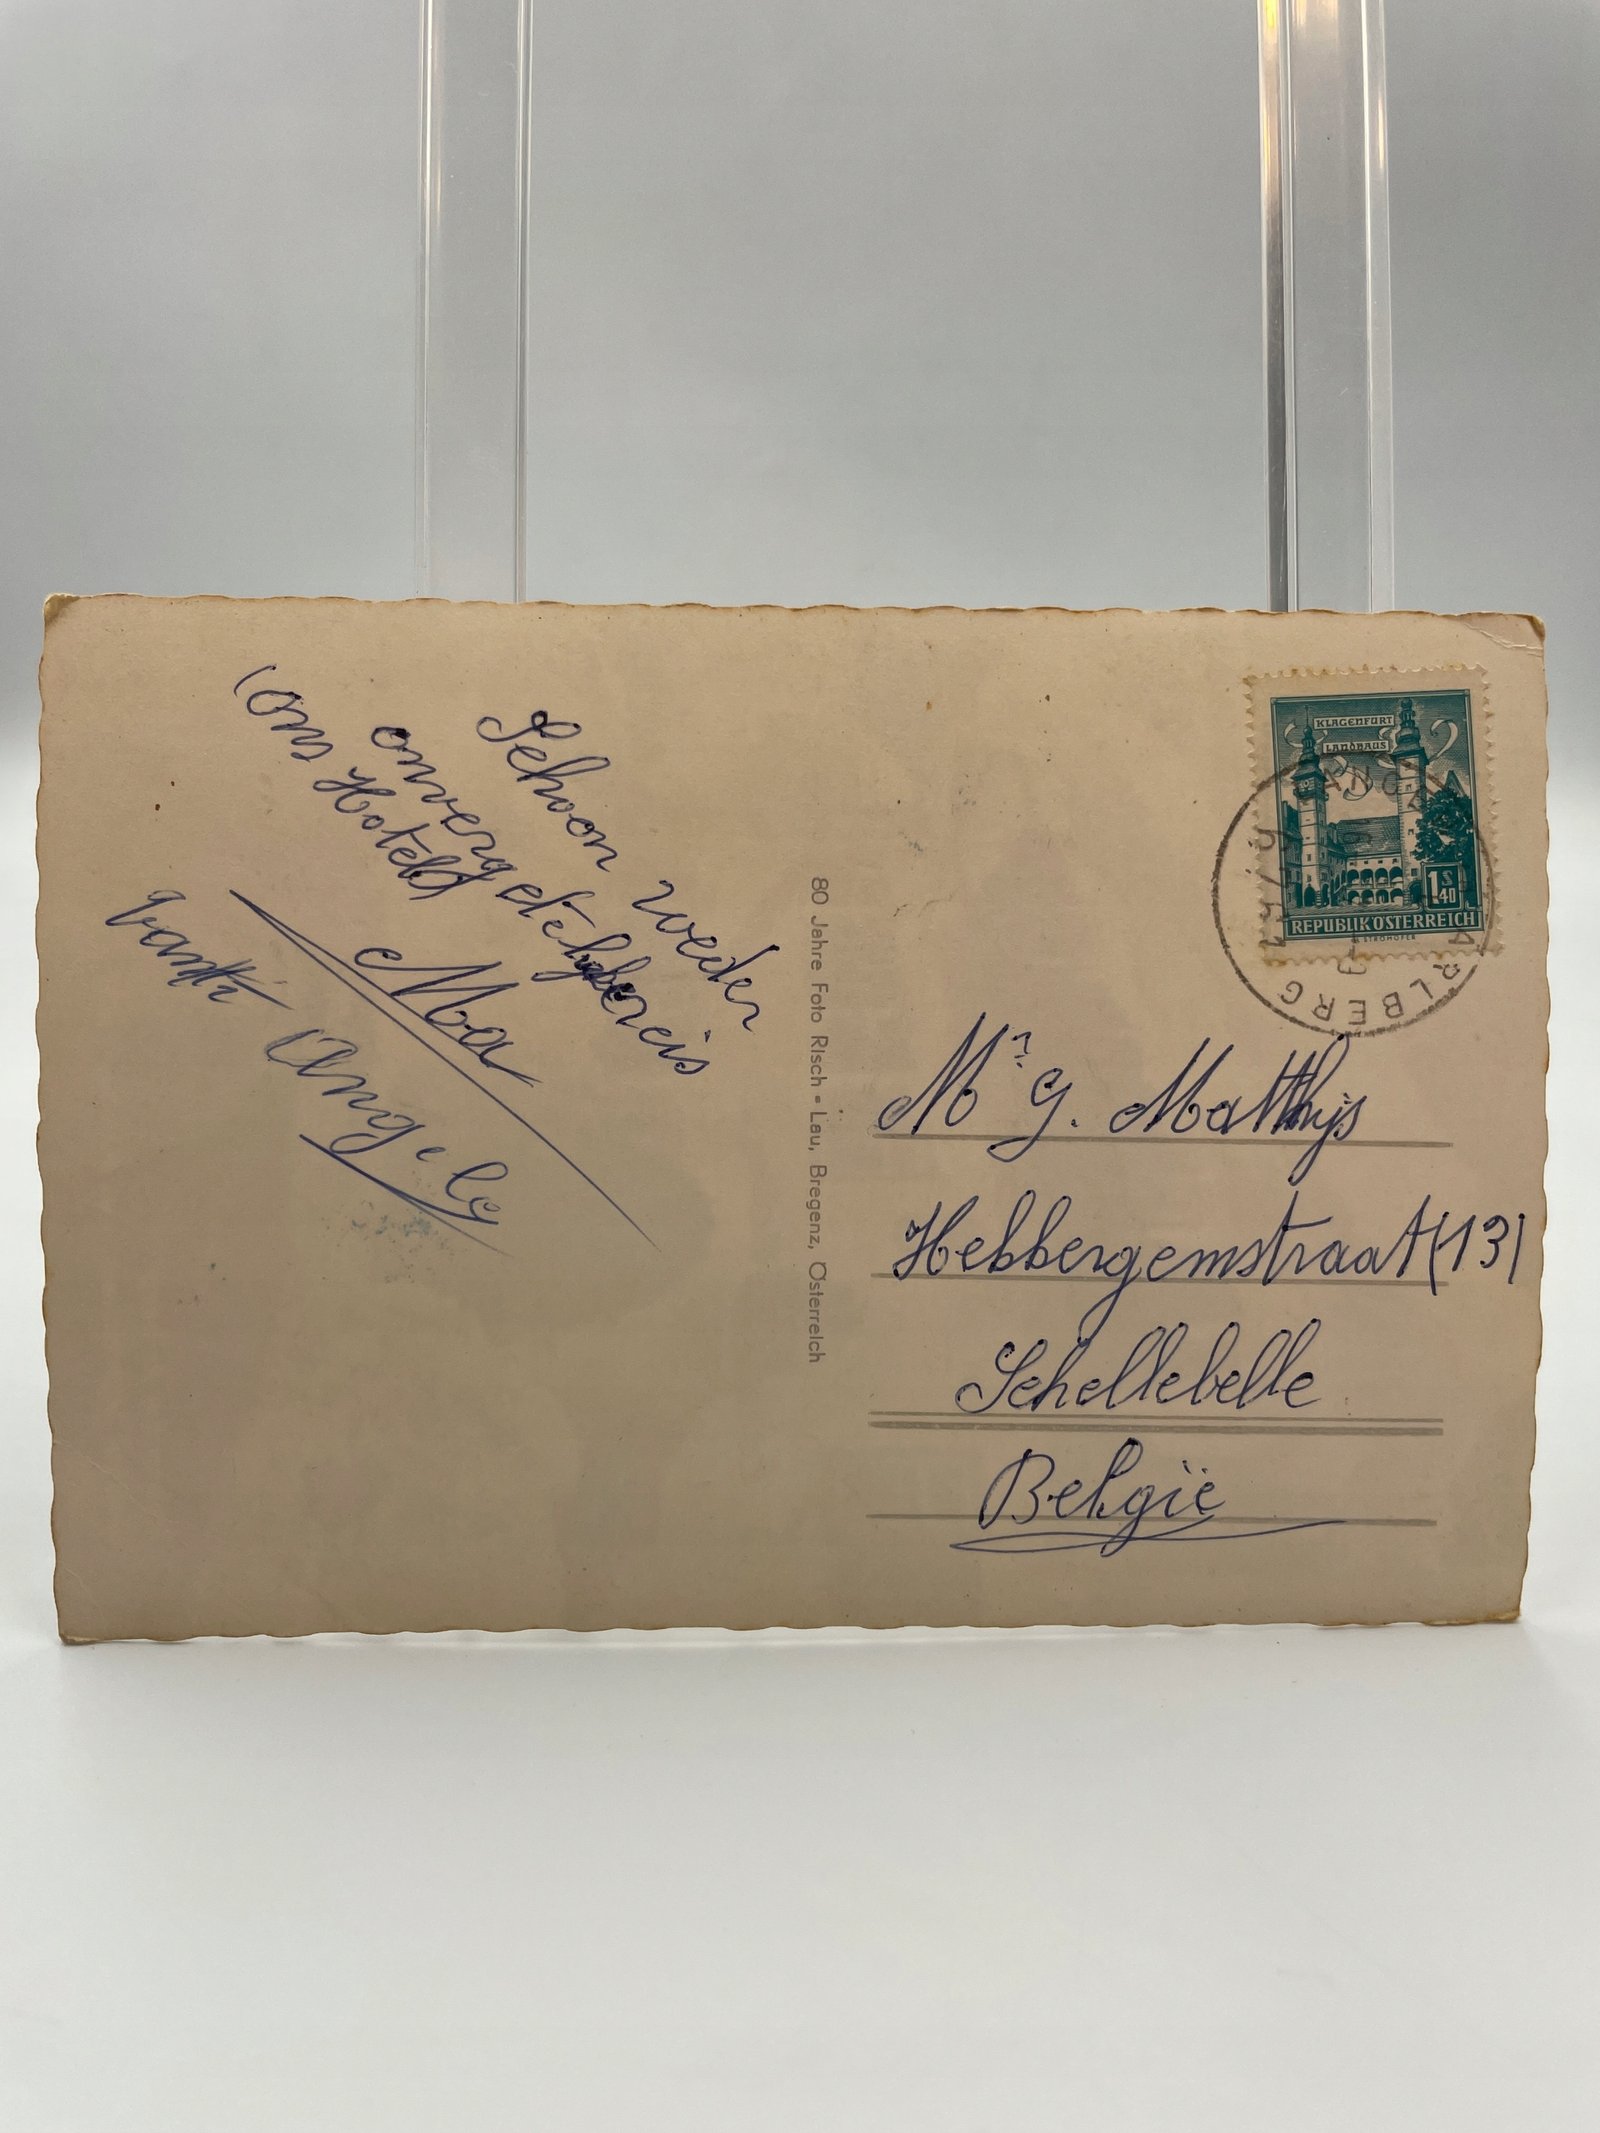 Schoon weder
onvergetelijke reis
(ons Hotel)
Ma
tantti Angele
80 Jahre Foto Risch - Lau, Bregenz, Österreich
KLAGENFURT
LANDHAUS
1 S 40
REPUBLIK ÖSTERREICH
ARLBERG
Mr G. Matthijs
Hebbergemstraat (13)
Schellebelle
België